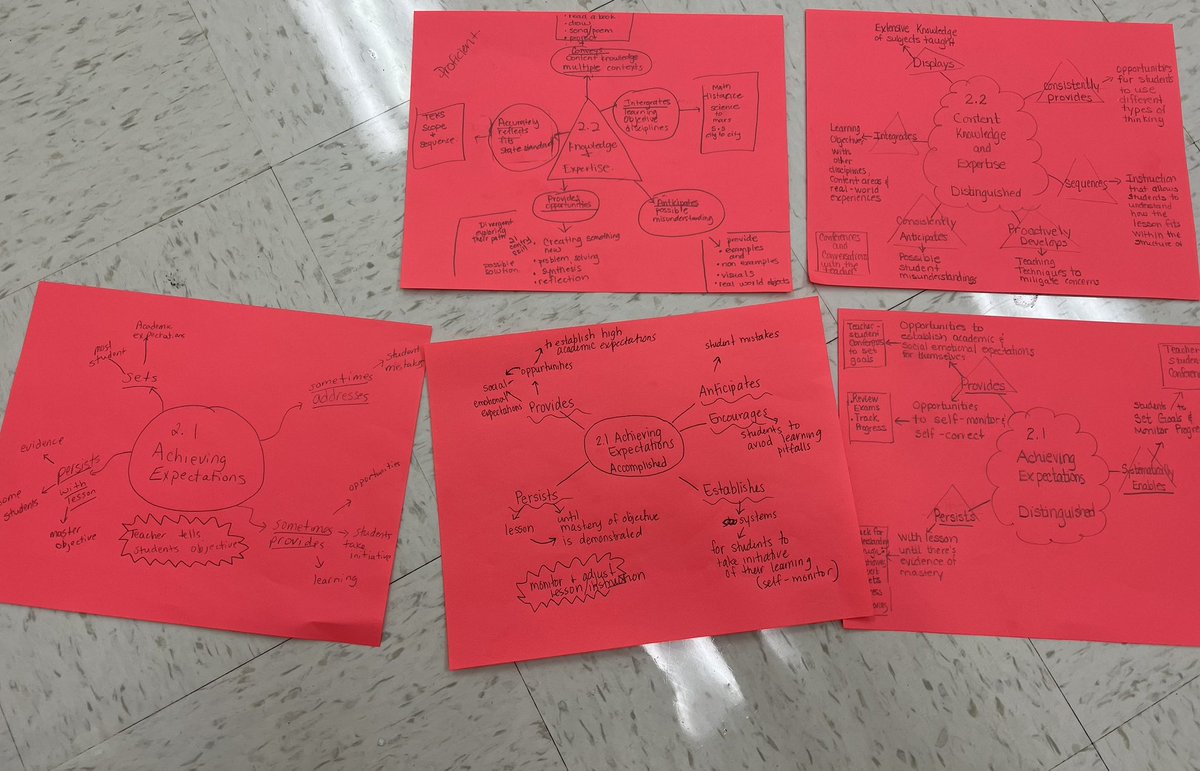 Proficient
• read a book
• draw
• song/poem
• project
Conveys
Content knowledge
multiple contexts
TEKS
Scope
+
Sequence
Accurately
reflects
state standards
2.2
Knowledge
Expertise
Intergrates
learning
Objective
disciplines
Math
Distance
science
to
mars
S.S
city to city
Provides
opportunities
Divergent
exploring
Their path
possible
solution
Creating something
new
• problem solving
• synthesis
• reflection
Anticipates
possible
misunderstanding
• provide
• examples
and
• non examples
• visuals
• real world objects
Extensive Knowledge
of subjects taught
Displays
2.2
Content
Knowledge
and
Expertise
Distinguished
consistently
provides
opportunities
for students
to use
different
types of
thinking
Integrates
Learning
Objectives
with
other
disciplines,
Content areas &
real-world
experiences
Sequences
Instruction
that allows
students to
understand
how the
lesson fits
within the
structure of
Consistently
Anticipates
Possible
student
misunderstandings
Proactively
Develops
Teaching
Techniques to
mitigate concerns
Conferences
and
Conversations
with the
teacher
Academic
expectations
most
student
Sets
sometimes
addresses
student
mistakes
2.1
Achieving
Expectations
evidence
persists
with
lesson
some
students
master
objective
Teacher tells
students objective
sometimes
provides
opportunities
students
take
initiative
learning
to establish high
academic expectations
opportunities
social
emotional
expectations
Provides
student mistakes
Anticipates
Encourages
students to
aviod learning
pitfalls
2.1 Achieving
Expectations
Accomplished
Persists
lesson
until
mastery of objective
is demonstrated
Establishes
systems
for students to
take initiative
of their learning
(self-monitor)
monitor + adjust
lesson/instruction
Teacher-
student
Conference
to set
goals
Opportunities to
establish academic &
social emotional expectations
for themselves
Provides
• Review
Exams
• Track
Progress
Opportunities
to self-monitor &
self-correct
2.1
Achieving
Expectations
Distinguished
Teacher
Student
Conference
Students to
Set Goals &
Monitor Progress
Systematically
Enables
Persists
with lesson
until there's
evidence of
mastery